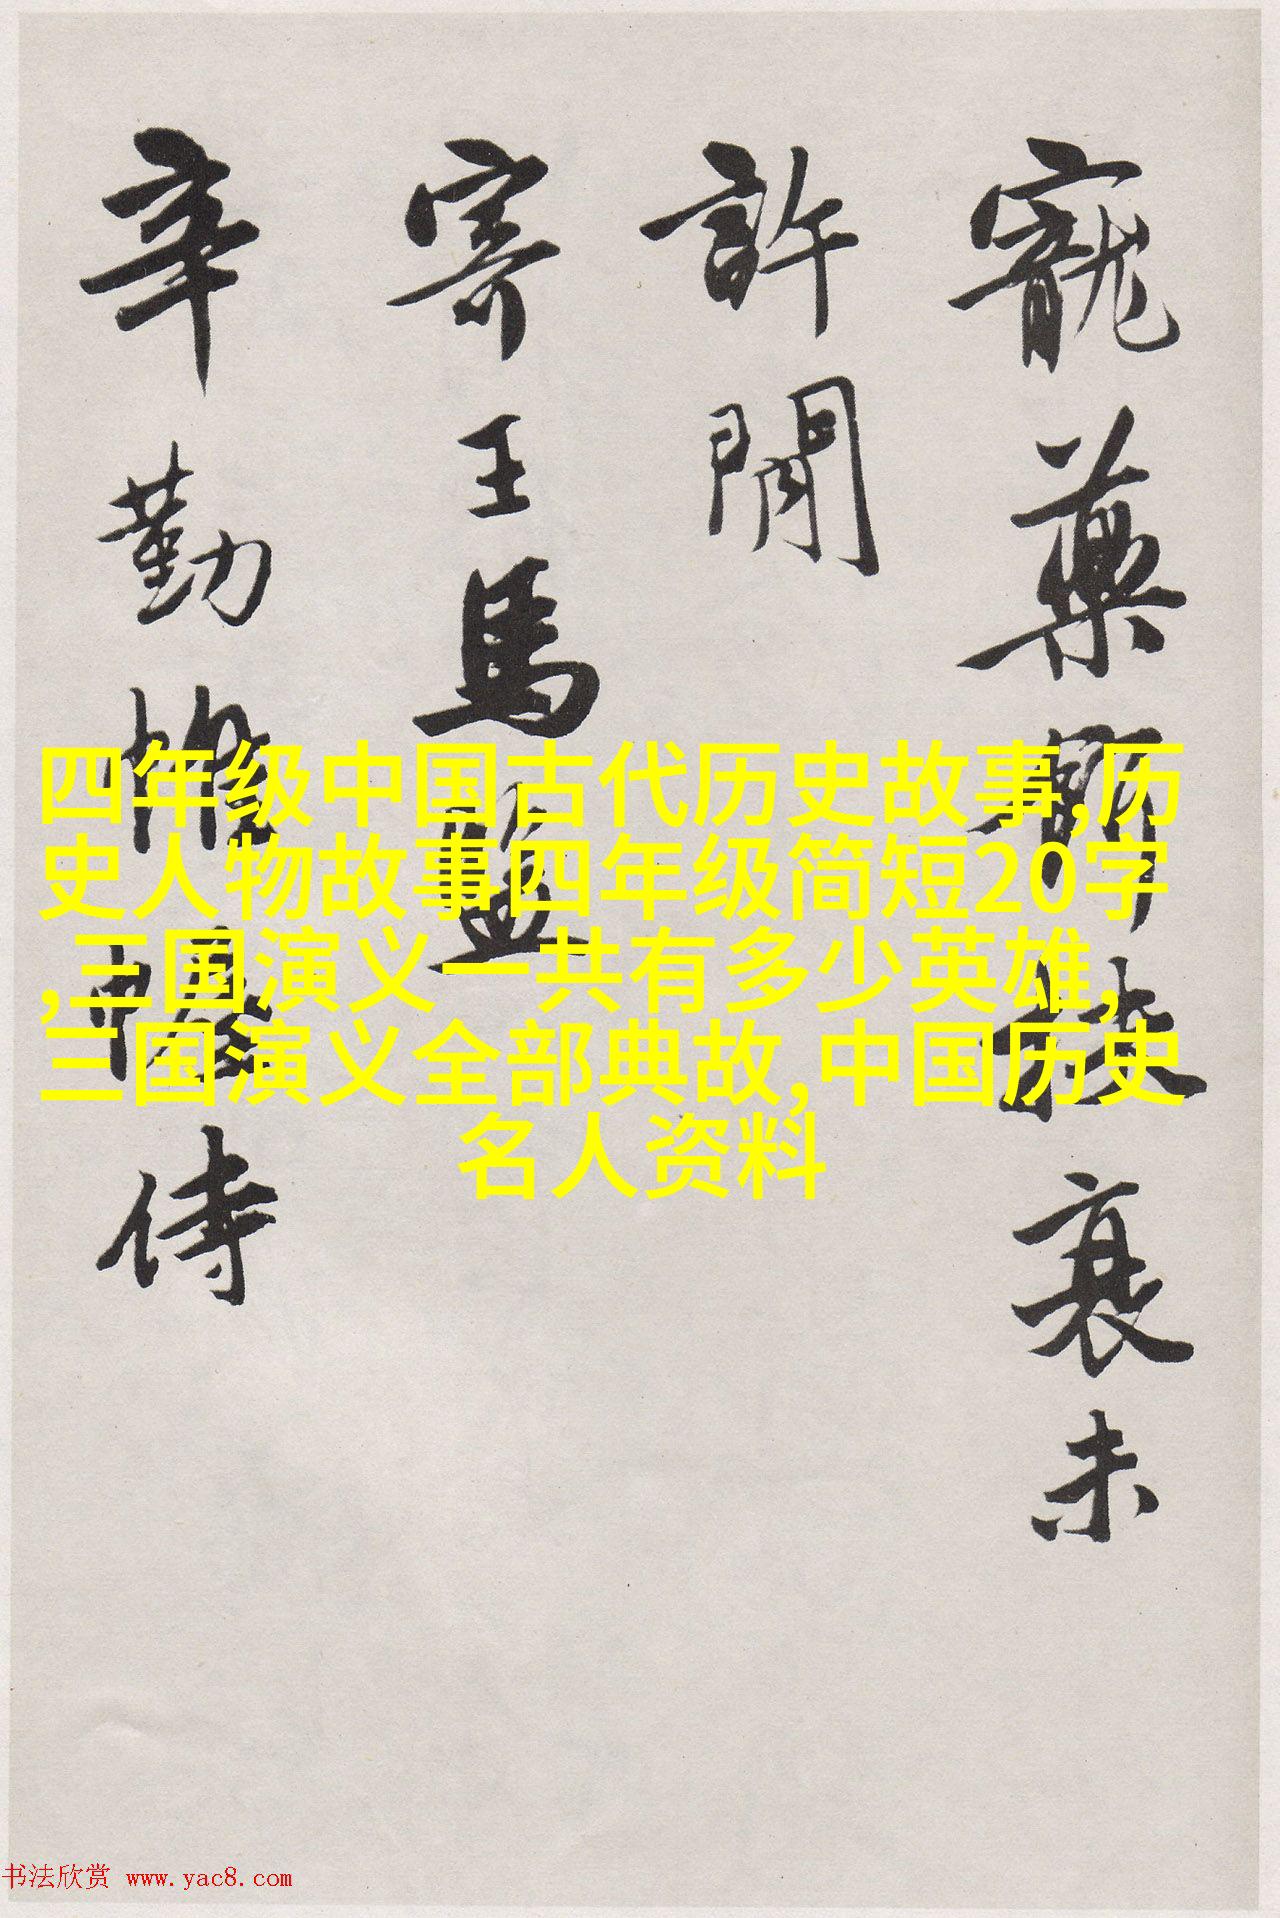 寵藥顧錢衰未
許閒
寄王馬監
辛勤帷幄侍
四年级中国古代历史故事,历
史人物故事四年级简短20字
,三国演义一共有多少英雄,
三国演义全部典故,中国历史
名人资料
书法欣赏 www.yac8.com